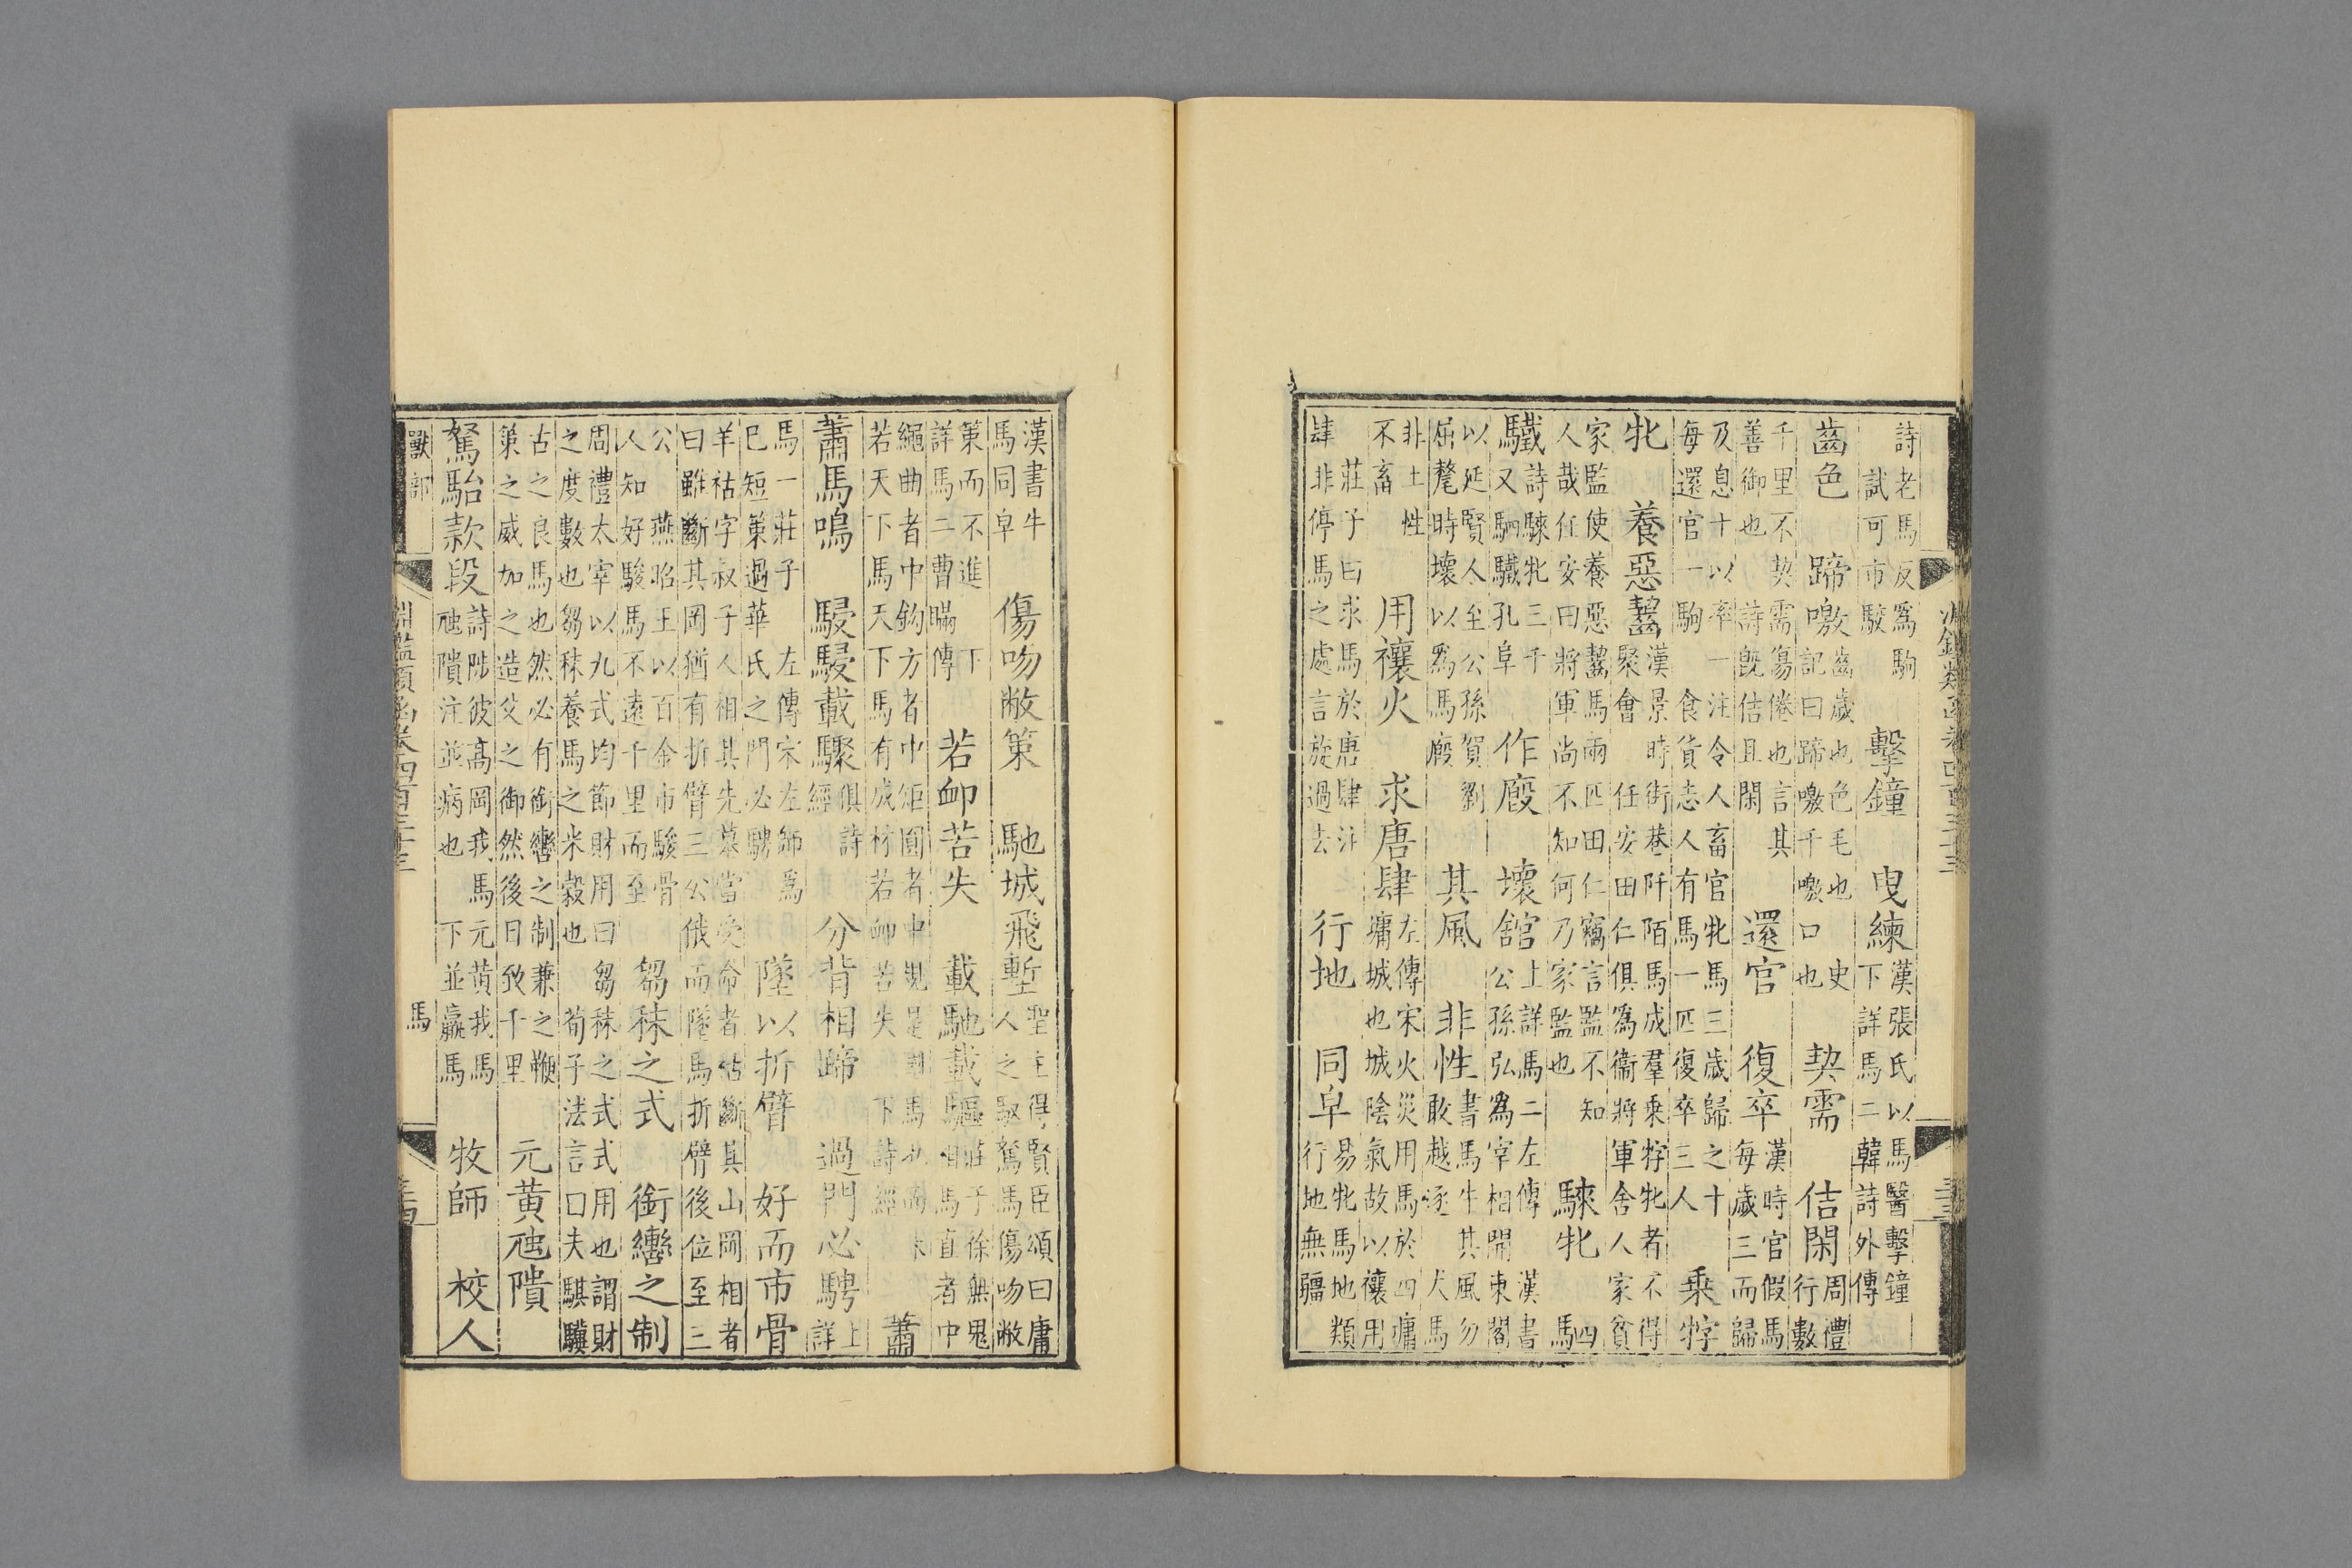 詩老馬反爲駒試可市駁 擊鐘 曳練 漢張氏以馬醫擊鐘下詳馬二韓詩外傳
齒色 蹄噭 齒歲也色毛也史記曰蹄噭千噭口也 契需 佶閑 周禮行數
千里不契需傷倦也言其善御也 詩旣佶且閑 還官 復卒 漢時官假馬每歲三而歸
及息十以率一注令人畜官牝馬三歲歸之十每還官一駒 食貨志人有馬一匹復卒三人 乘牸
牝 養惡齧 漢景時街巷阡陌馬成羣乘牸牝者不得聚會 任安田仁俱爲衞將軍舍人家貧
家監使養惡齧馬兩匹田仁竊言監不知人哉任安曰將軍尚不知何乃家監也 騋牝 四馬
驖 詩騋牝三千又駟驖孔阜 作廏 壞舘 上詳馬二左傳 漢書公孫弘爲宰相開東閣
以延賢人至公孫賀劉屈氂時壞以爲馬廏 其風 非性 書馬牛其風勿敢越逐 犬馬
非土性不畜 用禳火 求唐肆 左傳宋火災用馬於四墉墉城也城陰氣故以禳用
莊子曰求馬於唐肆注肆非停馬之處言旋過去 行地 同皁 易牝馬地類行地無疆
漢書牛馬同皁 傷吻敝策 馳城飛塹 聖主得賢臣頌曰庸人之馭駑馬傷吻敝
策而不進 下詳馬二曹瞞傳 若卹若失 載馳載驅 莊子徐無鬼相馬直者中
繩曲者中鈎方者中矩圓者中規是國馬也而未若天下馬天下馬有成材若卹若失 下詩經 蕭
蕭馬鳴 駸駸載驟 俱詩經 分背相蹄 過門必騁 上詳
馬一莊子 左傳宋左師爲巳短策過華氏之門必騁 墜以折臂 好而市骨
羊祜字叔子人相其先墓當受命者祜斷其山岡相者曰雖斷其岡猶有折臂三公俄而墜馬折臂後位至三
公 燕昭王以百金市駿骨人知好駿馬不遠千里而至 芻秣之式 銜轡之制
周禮太宰以九式均節財用曰芻秣之式式用也謂財之度數也芻秣養馬之米穀也 荀子法言口夫騏驥
古之良馬也然必有銜轡之制兼之鞭策之威加之造父之御然後日致千里 元黃虺隤
駑駘款段 詩陟彼高岡我馬元黃我馬虺隤注並病也 下並羸馬 牧師 校人
獸部 淵鑑類函卷四百三十三 馬